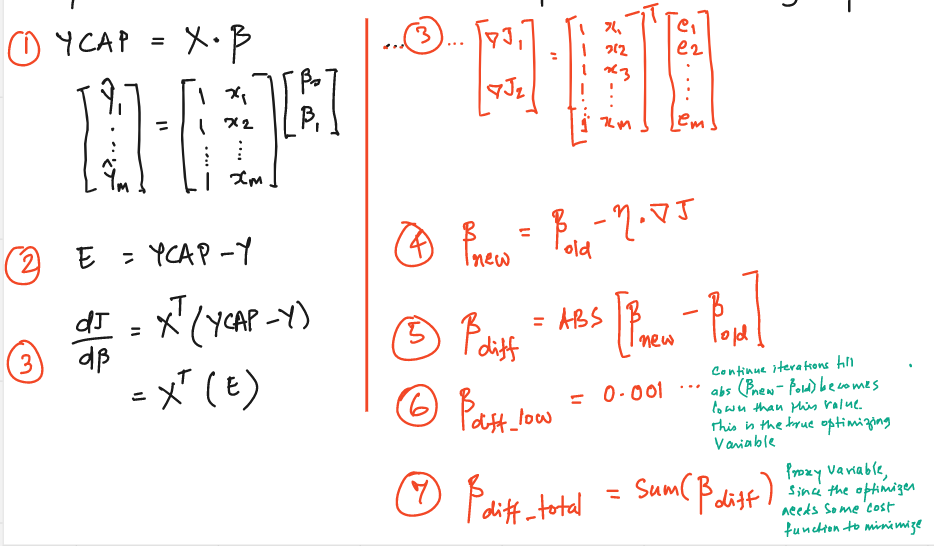 ① YCAP = X · β
[ŷ₁ ⋮ ŷm] = [1 x₁ 1 x₂ ⋮ ⋮ 1 xm] [β₀ β₁]
② E = YCAP - Y
③ dJ/dβ = Xᵀ (YCAP - Y)
= Xᵀ (E)
...③... [∇J₁ ∇J₂] = [1 x₁ 1 x₂ 1 x₃ ⋮ ⋮ 1 xm]ᵀ [e₁ e₂ ⋮ em]
④ β new = β old - η . ∇J
⑤ β diff = ABS [β new - β old]
⑥ β diff_low = 0.001 ...
Continue iterations till
abs (βnew - βold) becomes
lown than this value.
This is the true optimizing
Variable
⑦ β diff_total = Sum(β diff)
Proxy Variable,
Since the optimizer
needs Some cost
function to minimize